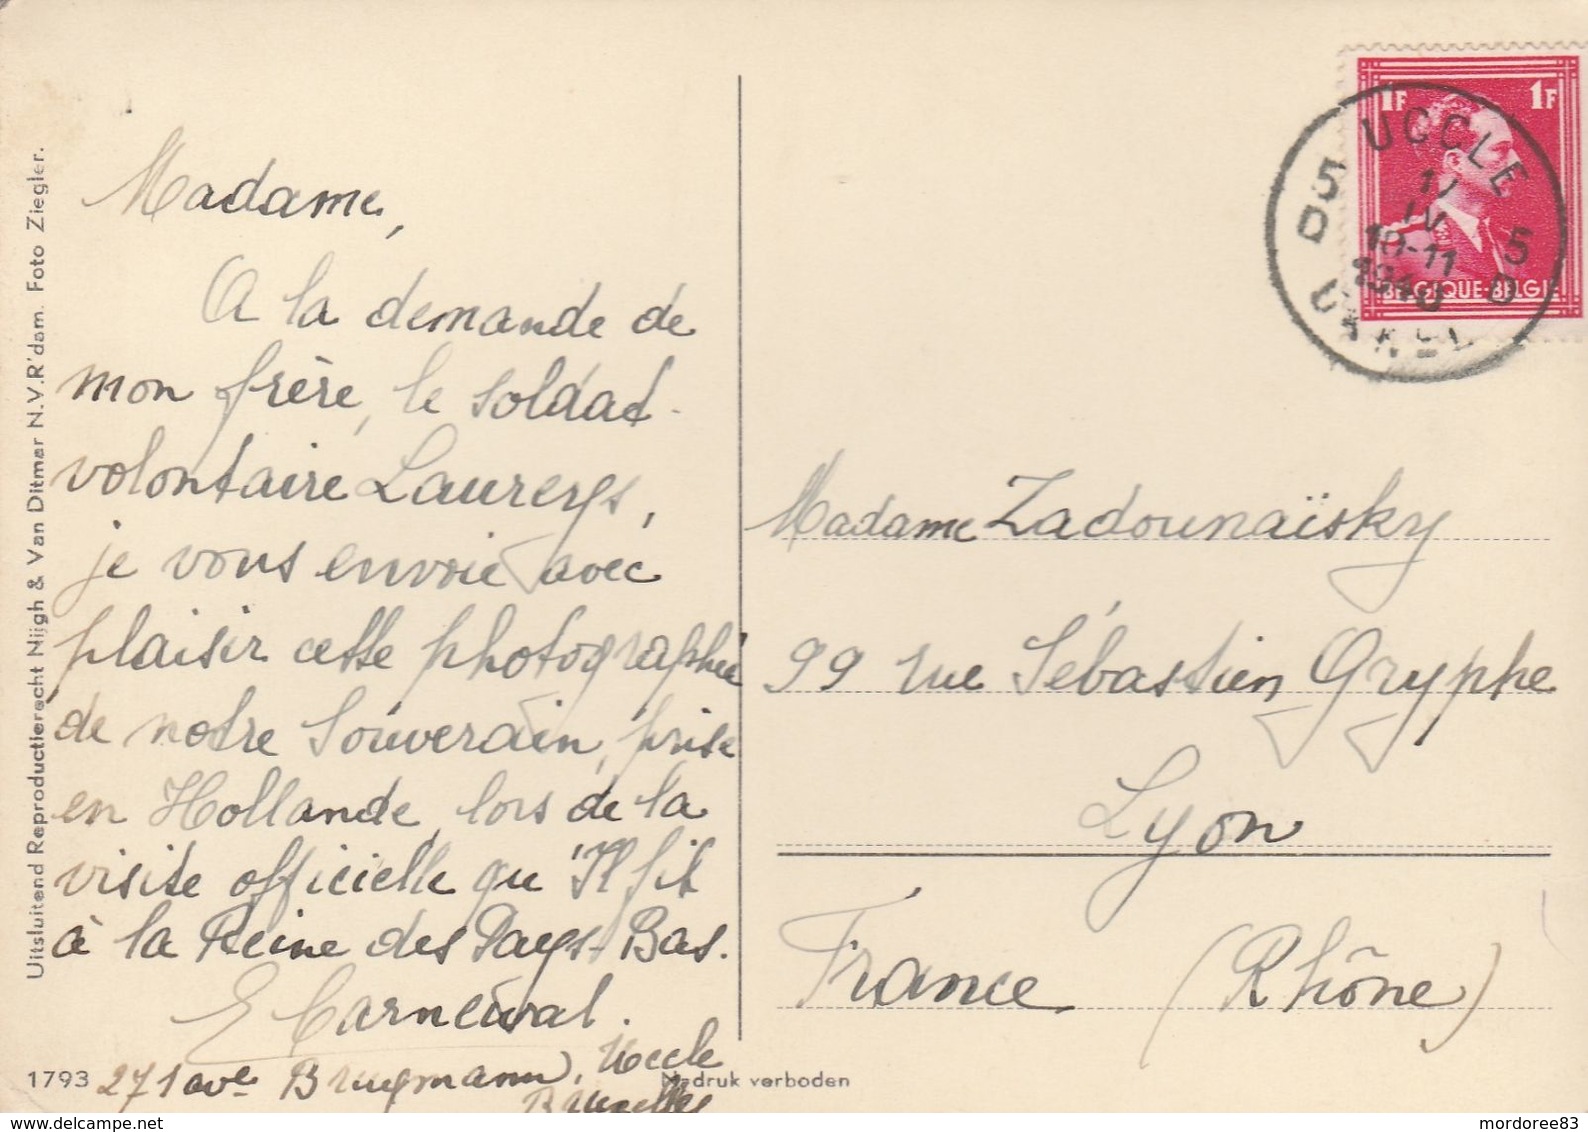 Madame,
A la demande de
mon frère, le soldat-
volontaire Laureys,
je vous envoie avec
plaisir cette photographie
de notre Souverain, prise
en Hollande, lors de la
visite officielle qu'Il fit
à la Reine des Pays-Bas.
E Carneival.
271 ave Brugmann, Uccle
Bruxelles
Uitsluitend Reproductierecht Nijgh & Van Ditmar N.V. R'dam. Foto Ziegler.
1793
Nadruk verboden
1F 1F
BELGIQUE-BELGIE
UCCLE
5 5
D D
IV
10-11
1940
UKKEL
Madame Zadounaïsky
99 rue Sébastien Gryphe
Lyon
France (Rhône)
www.delcampe.net
mordoree83